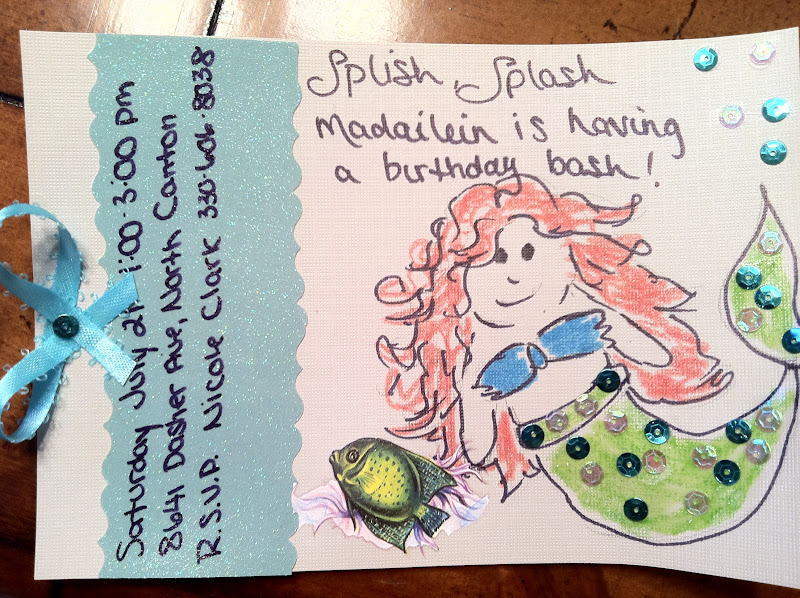 Splish, Splash
Madailein is having
a birthday bash!
Saturday July 21 1:00-3:00 pm
8641 Dasher Ave, North Canton
R.S.V.P. Nicole Clark 330·606·8038